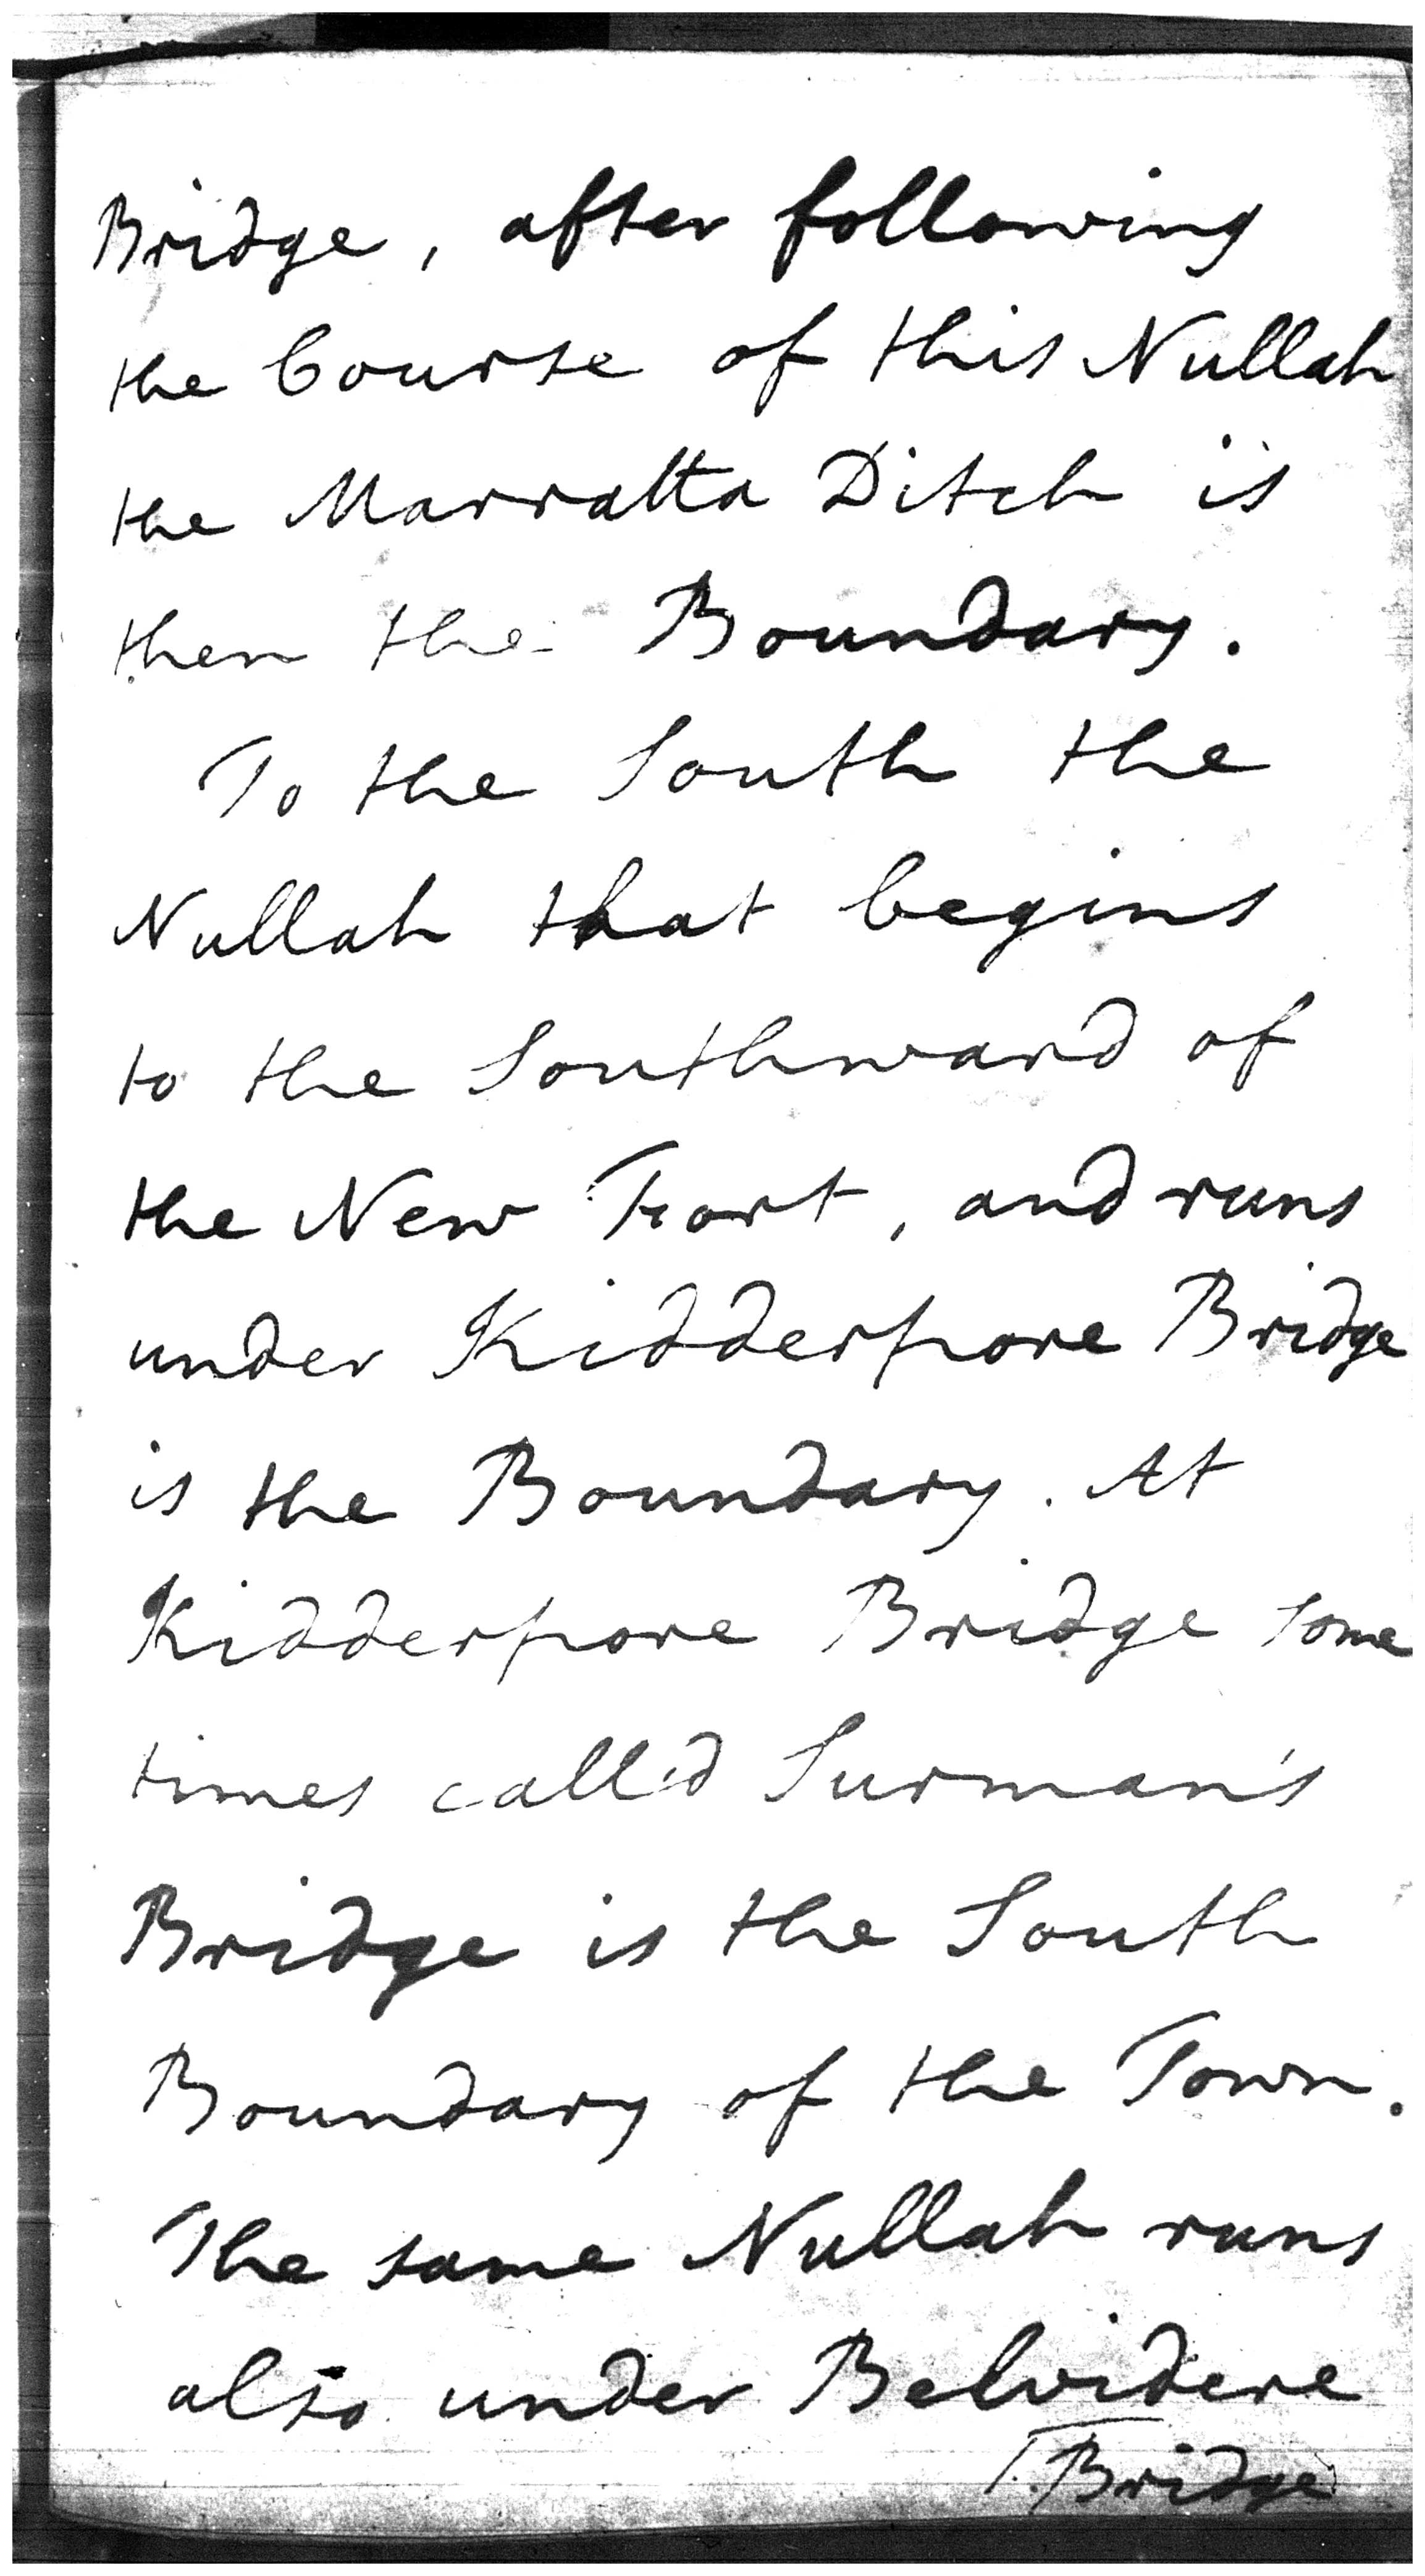 Bridge, after following
the Course of this Nullah
the Marratta Ditch is
then the Boundary.
To the South the
Nullah that begins
to the Southward of
the New Fort, and runs
under Kidderpore Bridge
is the Boundary. At
Kidderpore Bridge some
times call'd Surman's
Bridge is the South
Boundary of the Town.
The same Nullah runs
also under Belvidere
Bridge